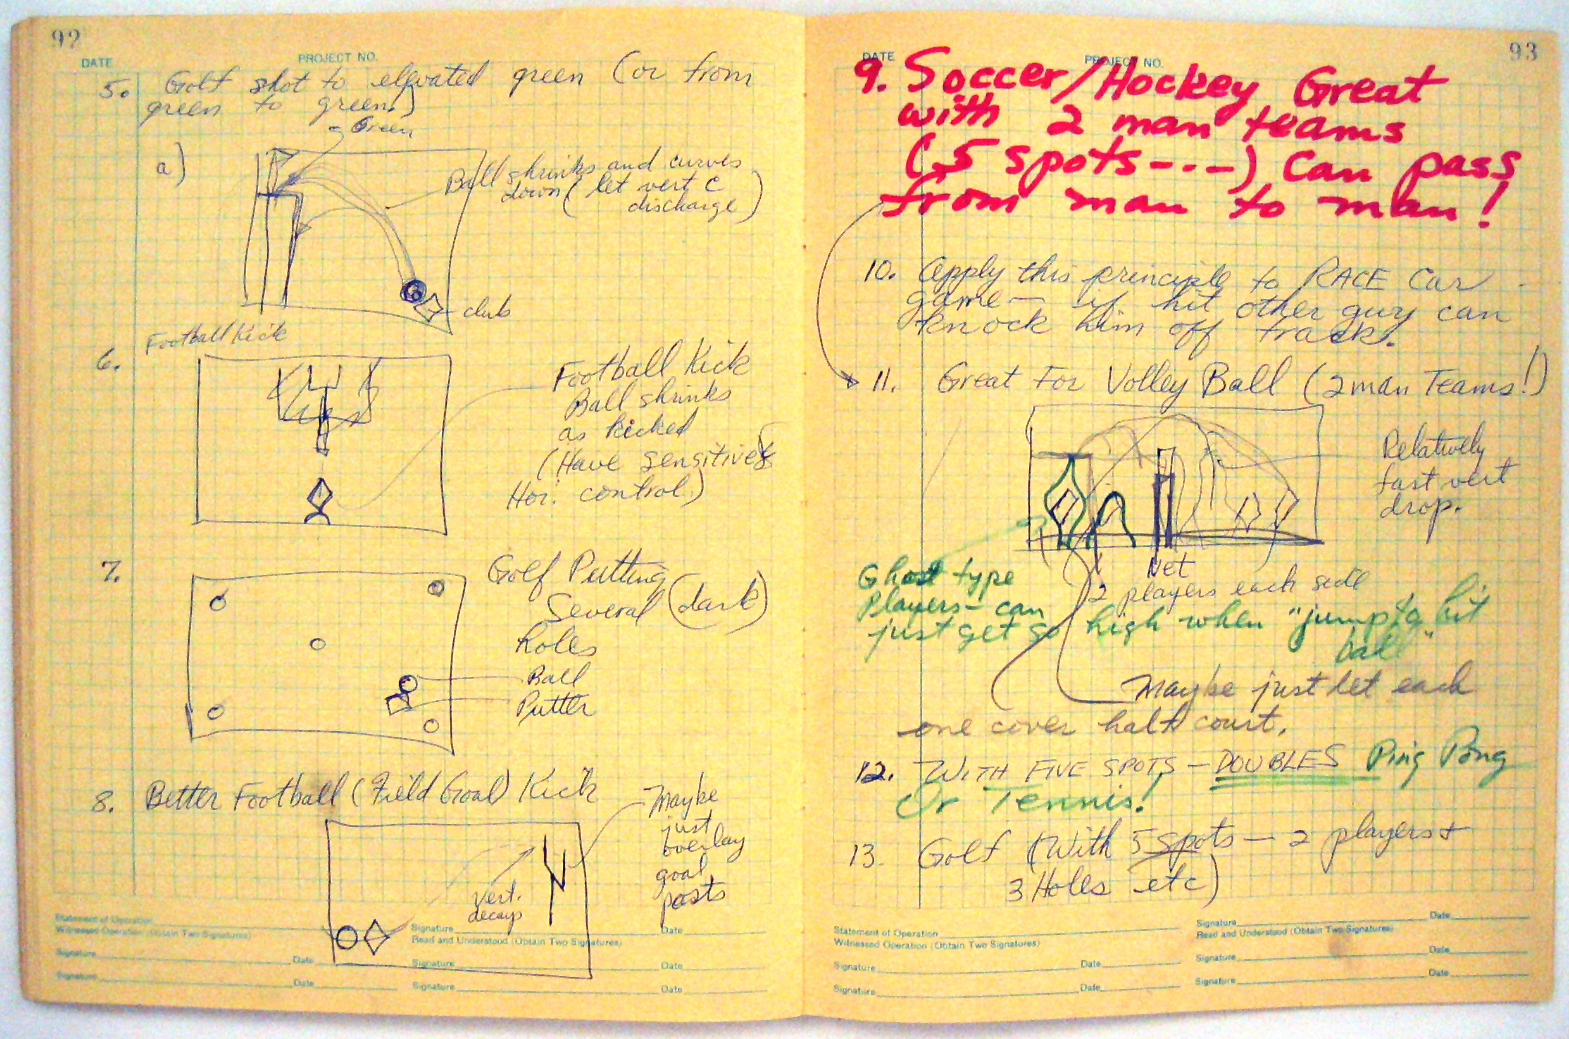 92
DATE
PROJECT NO.
5. Golf shot to elevated green (or from
green to green!)
Green
a)
Ball shrinks and curves
down (let vert c
discharge)
club
6. Football Kick
Football Kick
Ball shrinks
as kicked
(Have sensitive
Hor. control)
7. Golf Putting
Several (dark)
holes
Ball
Putter
8. Better Football (Field Goal) Kick
Maybe
just
overlay
goal
posts
vert.
decays
Statement of Operation
Witnessed Operation (Obtain Two Signatures)
Signature
Date
Signature
Date
Signature
Date
Read and Understood (Obtain Two Signatures)
Signature
Date
Signature
Date
93
DATE
PROJECT NO.
9. Soccer/Hockey Great
with 2 man teams
(5 spots---) Can pass
from man to man!
10. Apply this principle to RACE Car
game— if hit other guy can
knock him off track.
11. Great For Volley Ball (2 man Teams!)
Relatively
fast vert
drop.
Net
2 players each side
Ghost type
Players- can
just get so high when "jump to hit
ball"
Maybe just let each
one cover half court.
12. WITH FIVE SPOTS - DOUBLES Ping Pong
Or Tennis!
13. Golf (With 5 spots — 2 players +
3 Holes etc)
Statement of Operation
Witnessed Operation (Obtain Two Signatures)
Signature
Date
Signature
Date
Signature
Date
Read and Understood (Obtain Two Signatures)
Signature
Date
Signature
Date